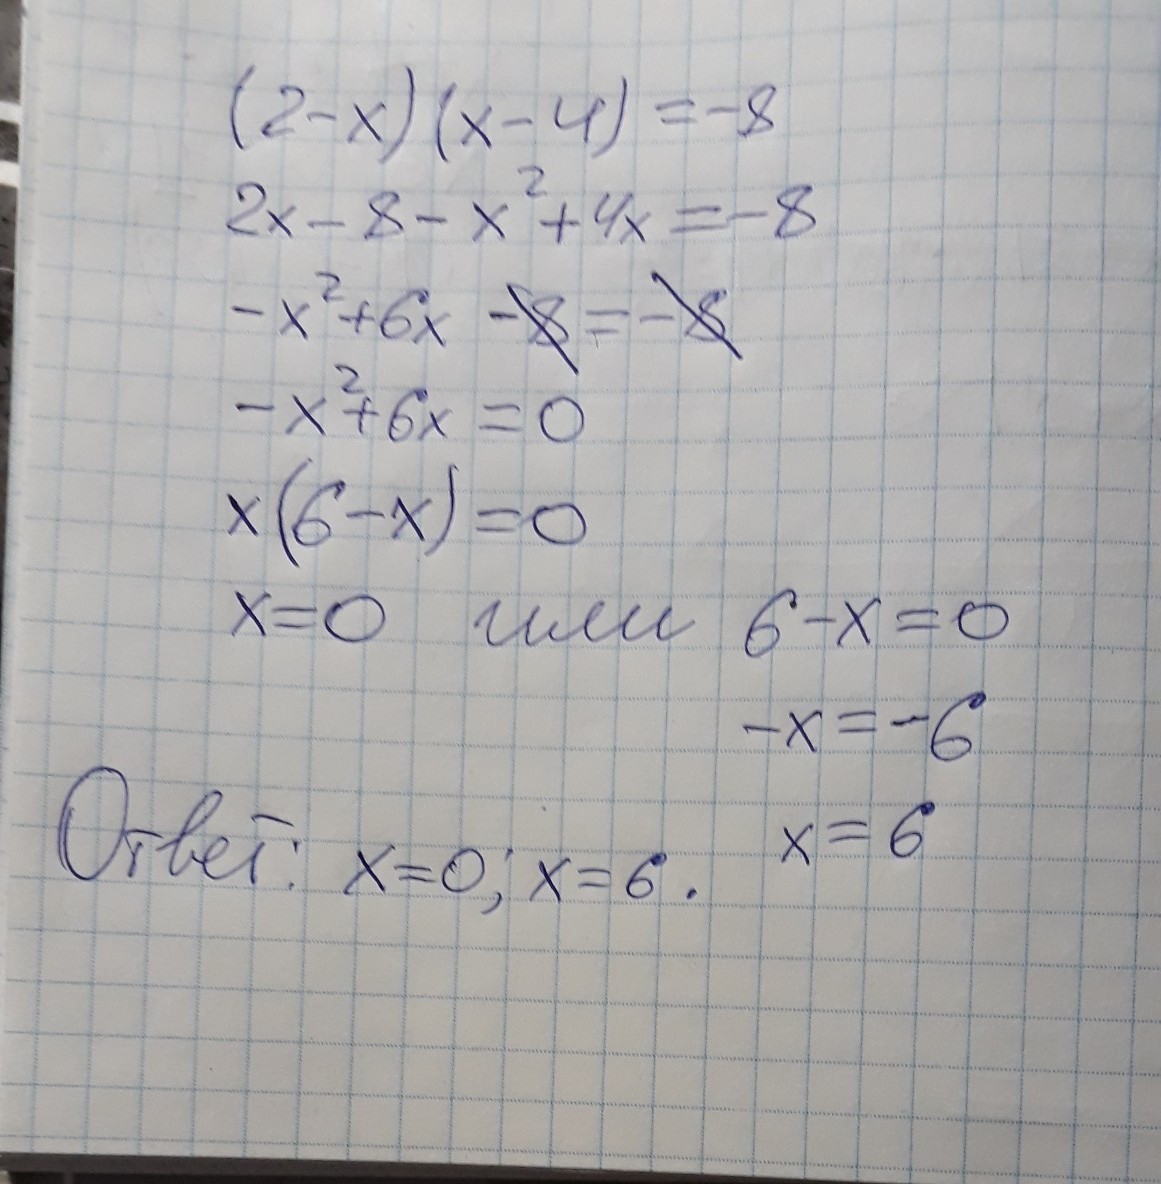 (2-x)(x-4)=-8
2x-8-x²+4x=-8
-x²+6x-8=-8
-x²+6x=0
x(6-x)=0
x=0 или 6-x=0
-x=-6
x=6
Ответ: x=0; x=6.